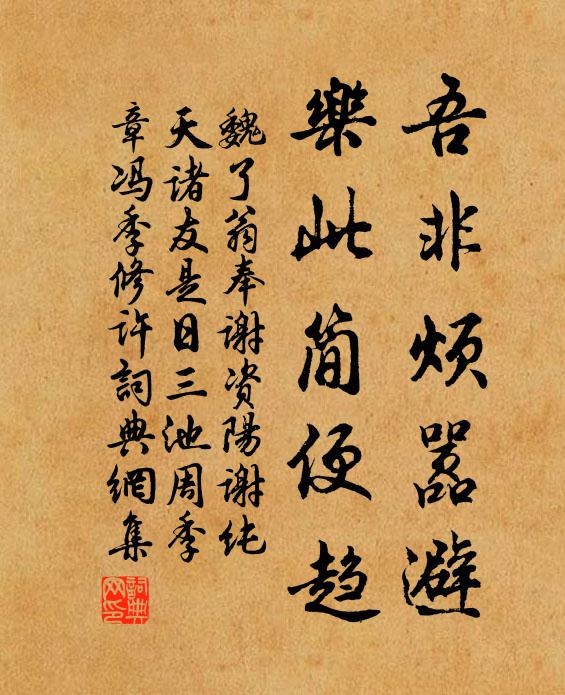 吾非烦嚣避
樂此简便趋
魏了翁奉谢资陽谢纯
天诸友是日三池周季
章冯季修许詞典網集
詞典
网印